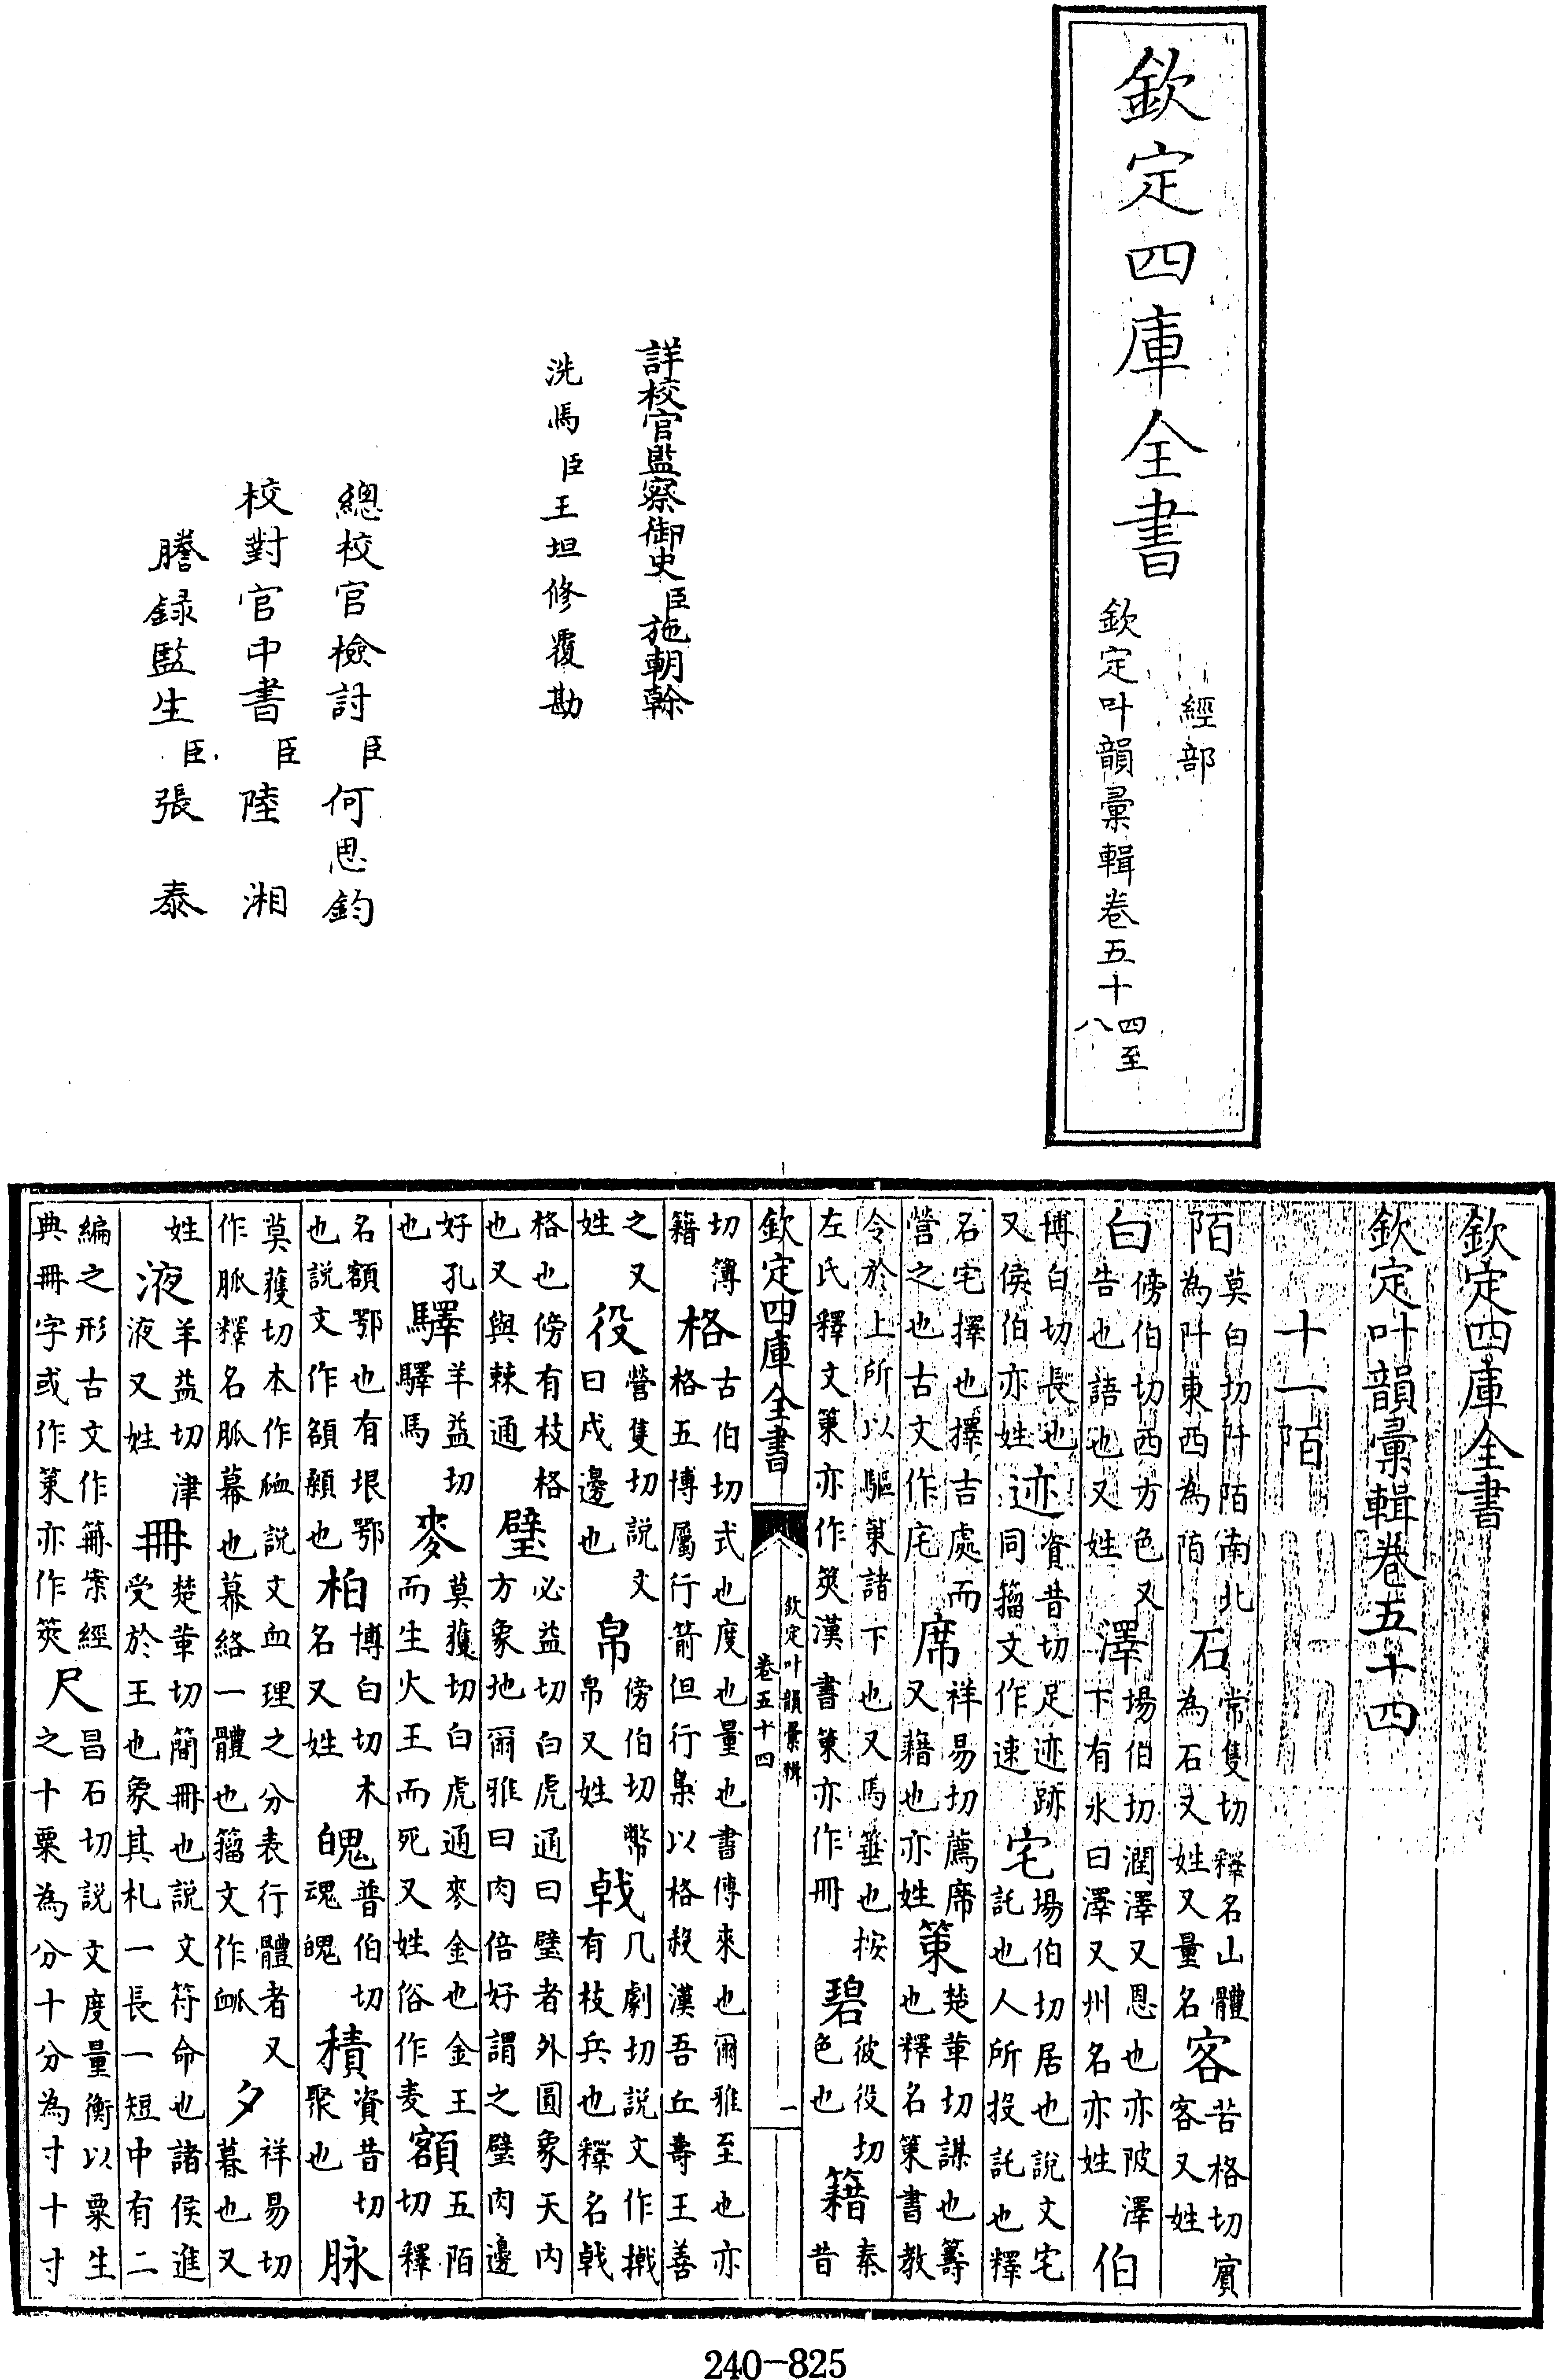 欽定四庫全書
經部
欽定叶韻彙輯卷五十四至八
詳校官監察御史臣施朝幹
洗馬臣王坦修覆勘
總校官檢討臣何思鈞
校對官中書臣陸湘
謄録監生臣張泰
欽定四庫全書
欽定叶韻彙輯卷五十四
十一陌
陌莫白切阡陌南北為阡東西為陌石常隻切釋名山體為石又姓又量名客苦格切賓客又姓
白傍伯切西方色又告也語也又姓澤場伯切潤澤又恩也亦陂澤下有水曰澤又州名亦姓伯
博白切長也又侯伯亦姓迹資昔切足迹跡同籀文作速宅場伯切居也說文宅託也人所投託也釋
名宅擇也擇吉處而營之也古文作㡯席祥易切薦席又藉也亦姓策楚革切謀也籌也釋名策書教
令於上所以驅策諸下也又馬箠也按左氏釋文策亦作筴漢書策亦作冊碧彼役切色也籍秦昔
欽定四庫全書
欽定叶韻彙輯
卷五十四
一
切簿籍格古伯切式也度也量也書傳來也爾雅至也亦格五博屬行箭但行梟以格殺漢吾丘壽王善
之又姓役營隻切說文曰戍邊也帛傍伯切幣帛又姓戟几劇切說文作㦸有枝兵也釋名戟
格也傍有枝格也又與棘通璧必益切白虎通曰璧者外圓象天內方象地爾雅曰肉倍好謂之璧肉邊
好孔也驛羊益切驛馬麥莫獲切白虎通麥金也金王而生火王而死又姓俗作麦額五陌切釋
名額鄂也有垠鄂也說文作頟顙也柏博白切木名又姓魄普伯切魂魄積資昔切聚也脉
莫獲切本作䘑說文血理之分表行體者又作脈釋名脈幕也幕絡一體也籀文作衇夕祥易切暮也又
姓液羊益切津液又姓冊楚革切簡冊也說文符命也諸侯進受於王也象其札一長一短中有二
編之形古文作笧案經典冊字或作策亦作筴尺昌石切說文度量衡以粟生之十粟為分十分為寸十寸
240-825